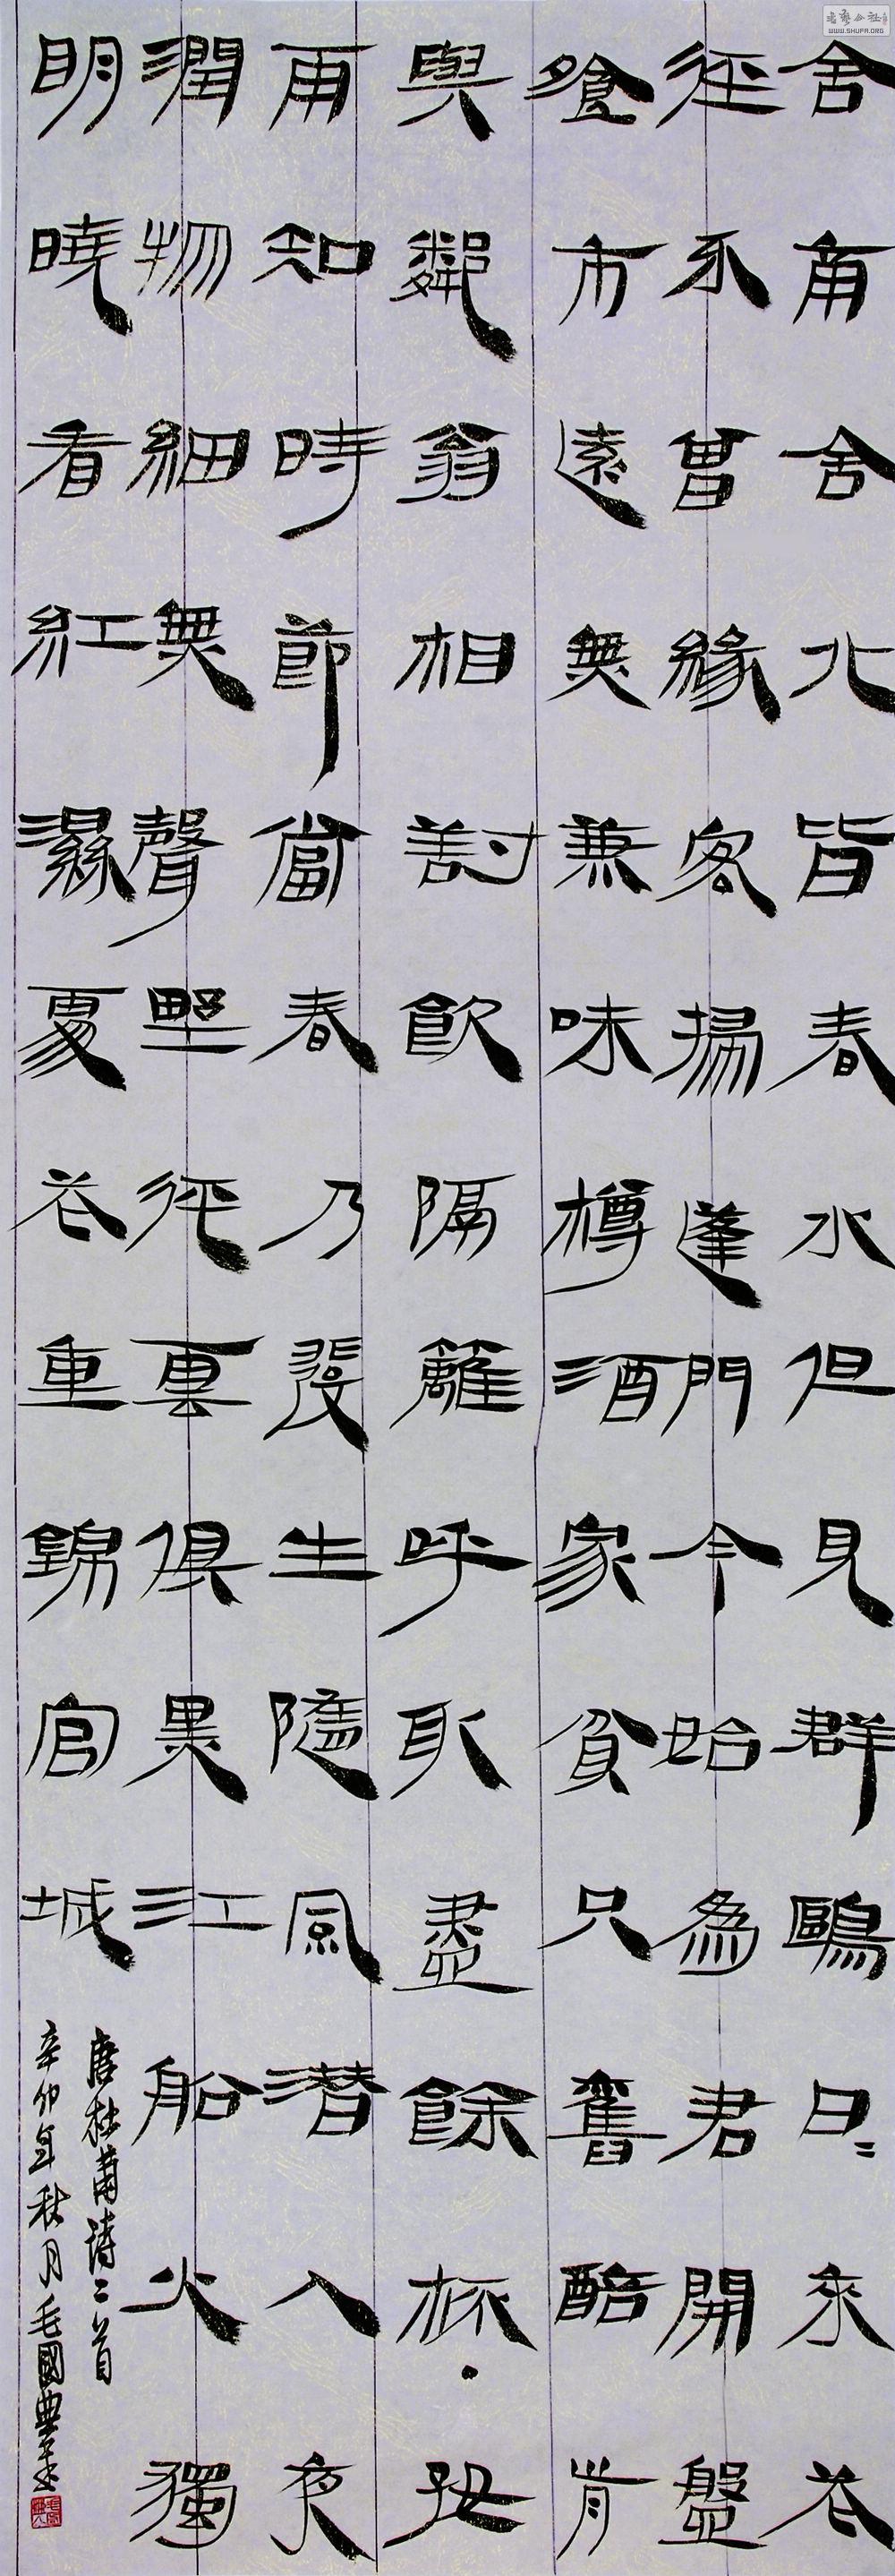 舍南舍北皆春水但見群鷗日〻來花
徑不曾緣客掃蓬門今始為君開盤
飧市遠無兼味樽酒家貧只舊醅肯
與鄰翁相對飲隔籬呼取盡餘杯·好
雨知時節當春乃發生隨風潛入夜
潤物細無聲野徑雲俱黑江船火獨
明曉看紅濕處花重錦官城
唐杜甫詩二首
辛卯年秋月毛國典書
WWW.SHUFA.ORG